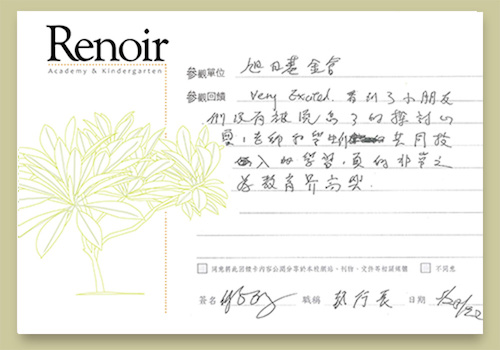 Renoir
Academy & Kindergarten
參觀單位 旭日基金會
參觀回饋 Very Excited. 看到了小朋友
們沒有被
老師和學生們 共同投
入的學習,真的非常之
為教育界高興.
同意將此回饋卡內容公開分享於本校網站、刊物、文件等相關媒體 不同意
簽名 職稱 執行長 日期